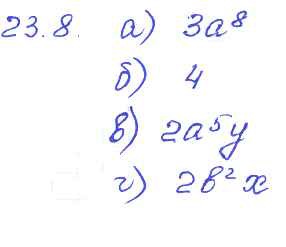 23.8. а) 3a⁸
б) 4
в) 2a⁵y
г) 2b²x